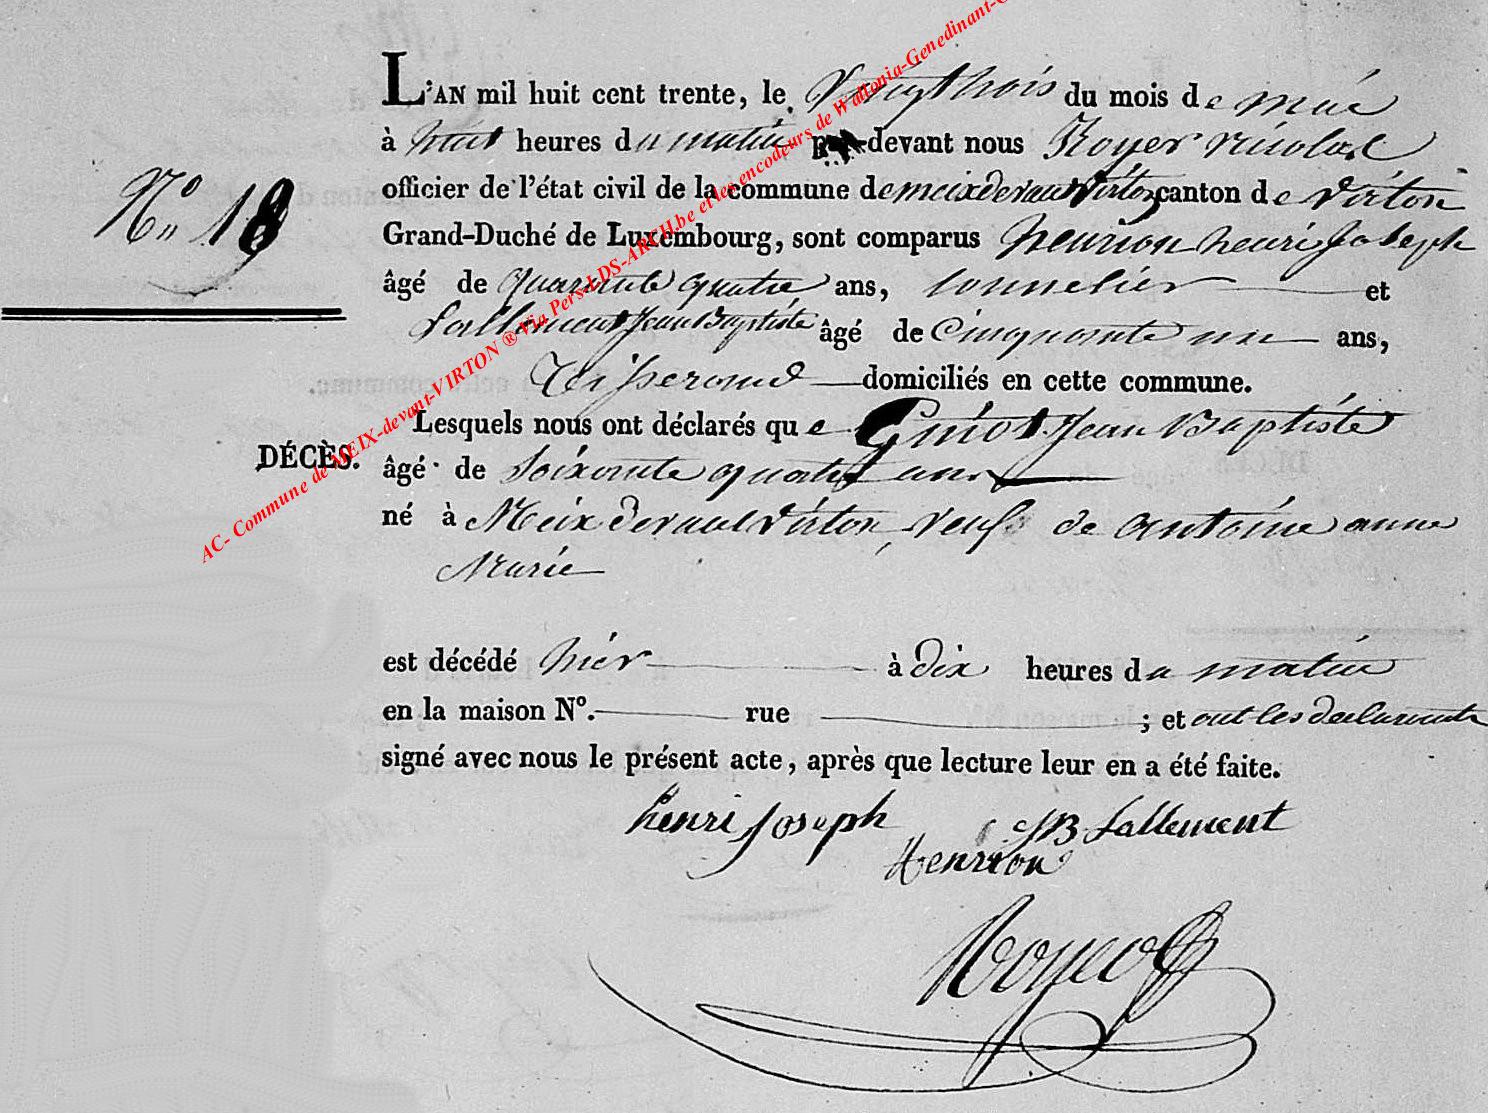 AC- Commune de MEIX-devant-VIRTON ® Via Pers-LDS-ARCH.be et les encodeurs de Wallonia-Genedinant-
L'AN mil huit cent trente, le vingt trois du mois de mai
à huit heures du matin par devant nous Royer nicolas
officier de l'état civil de la commune de meix devant Virton canton de virton
Grand-Duché de Luxembourg, sont comparus henrion henri Joseph
N° 18
âgé de quarante quatre ans, tonnelier et
Lallement Jean Baptiste âgé de Cinquante un ans,
Tisserand domiciliés en cette commune.
Lesquels nous ont déclarés que Guiot Jean Baptiste
DÉCÈS. âgé de Soixante quatre ans
né à Meix devant virton, veuf de antoine anne
Marie
est décédé hier à dix heures du matin
en la maison N°. rue ; et ont les declarants
signé avec nous le présent acte, après que lecture leur en a été faite.
henri Joseph JB Lallement
Henrion
Royer